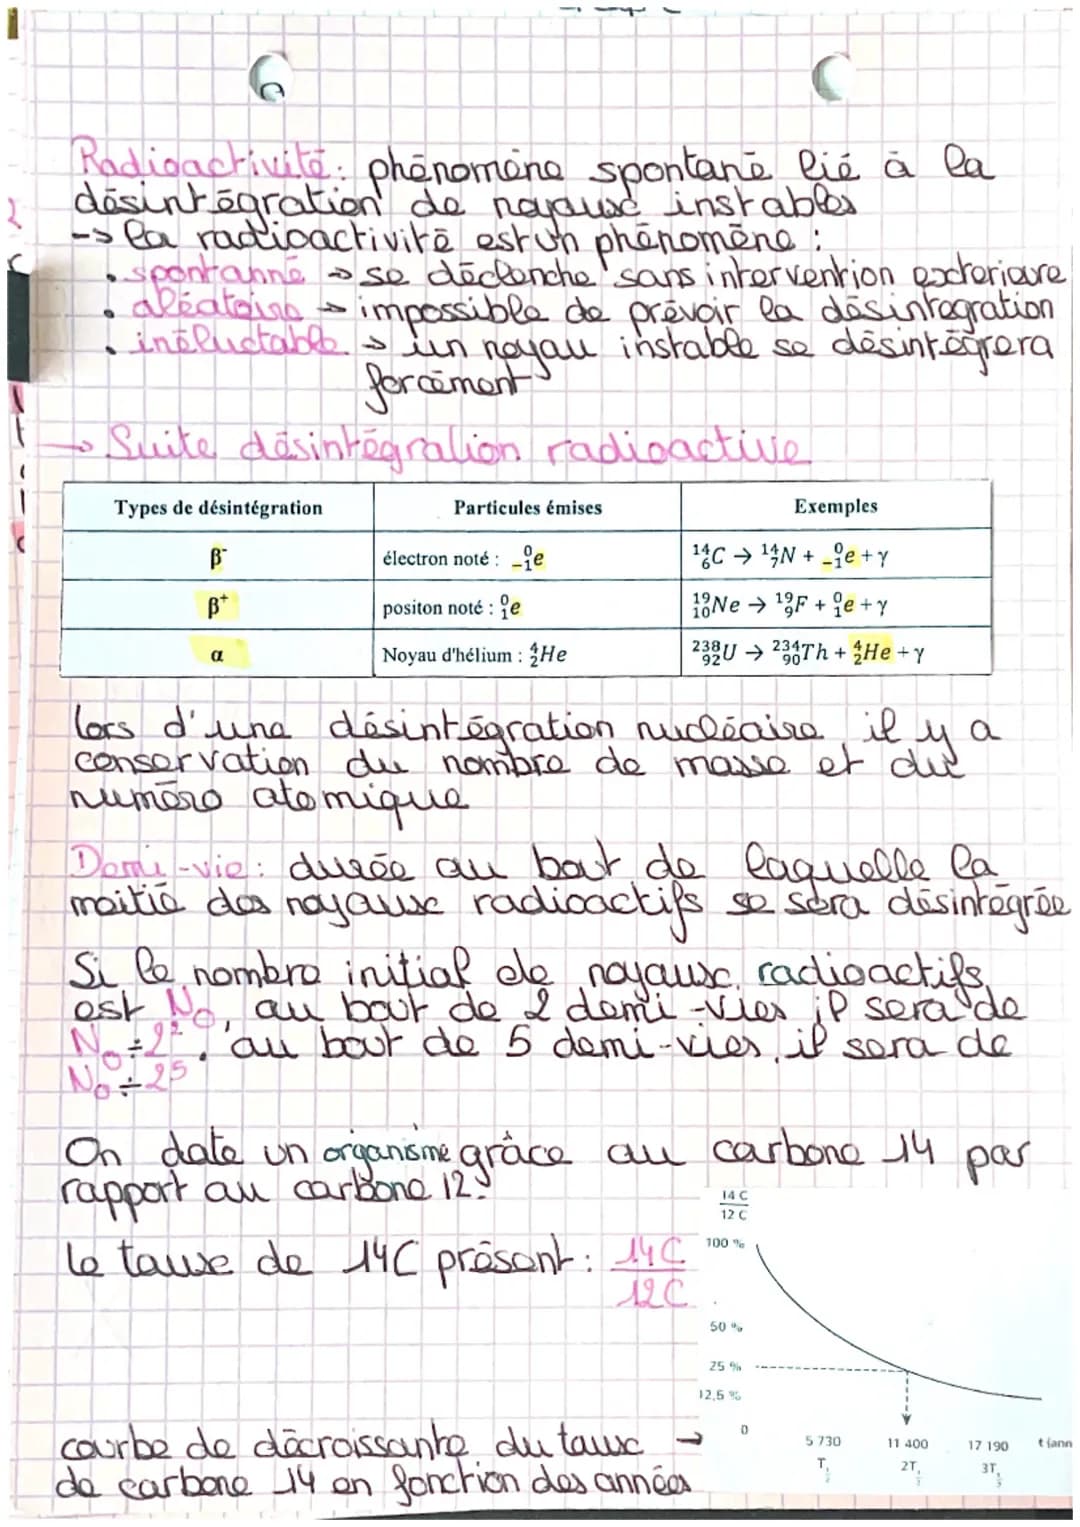 Radioactivité : phénomène spontané lié à la
désintégration de noyaux instables
-> la radioactivité est un phénomène :
• spontanné → se déclenche sans intervention exterieure
• aléatoire → impossible de prévoir la désintegration
• inéluctable → un noyau instable se désintégrera
forcément
→ Suite désintégration radioactive
Types de désintégration | Particules émises | Exemples
β⁻ | électron noté : ⁰₋₁e | ¹⁴₆C → ¹⁴₇N + ⁰₋₁e + γ
β⁺ | positon noté : ⁰₁e | ¹⁹₁₀Ne → ¹⁹₉F + ⁰₁e + γ
α | Noyau d'hélium : ⁴₂He | ²³⁸₉₂U → ²³⁴₉₀Th + ⁴₂He + γ
lors d'une désintégration nucléaire il y a
conservation du nombre de masse et du
numéro atomique
Demi-vie : durée au bout de laquelle la
moitié des noyaux radioactifs se sera désintégrée
Si le nombre initial de noyaux radioactifs
est N₀, au bout de 2 demi-vies il sera de
N₀÷2², au bout de 5 demi-vies, il sera de
N₀÷2⁵
On date un organisme grâce au carbone 14 par
rapport au carbone 12.
le taux de 14C présent : 14C/12C
14 C
12 C
100 %
50 %
25 %
12,5 %
0
5 730 11 400 17 190 t (ann
T½ 2T½ 3T½
courbe de décroissante du taux →
de carbone 14 en fonction des années